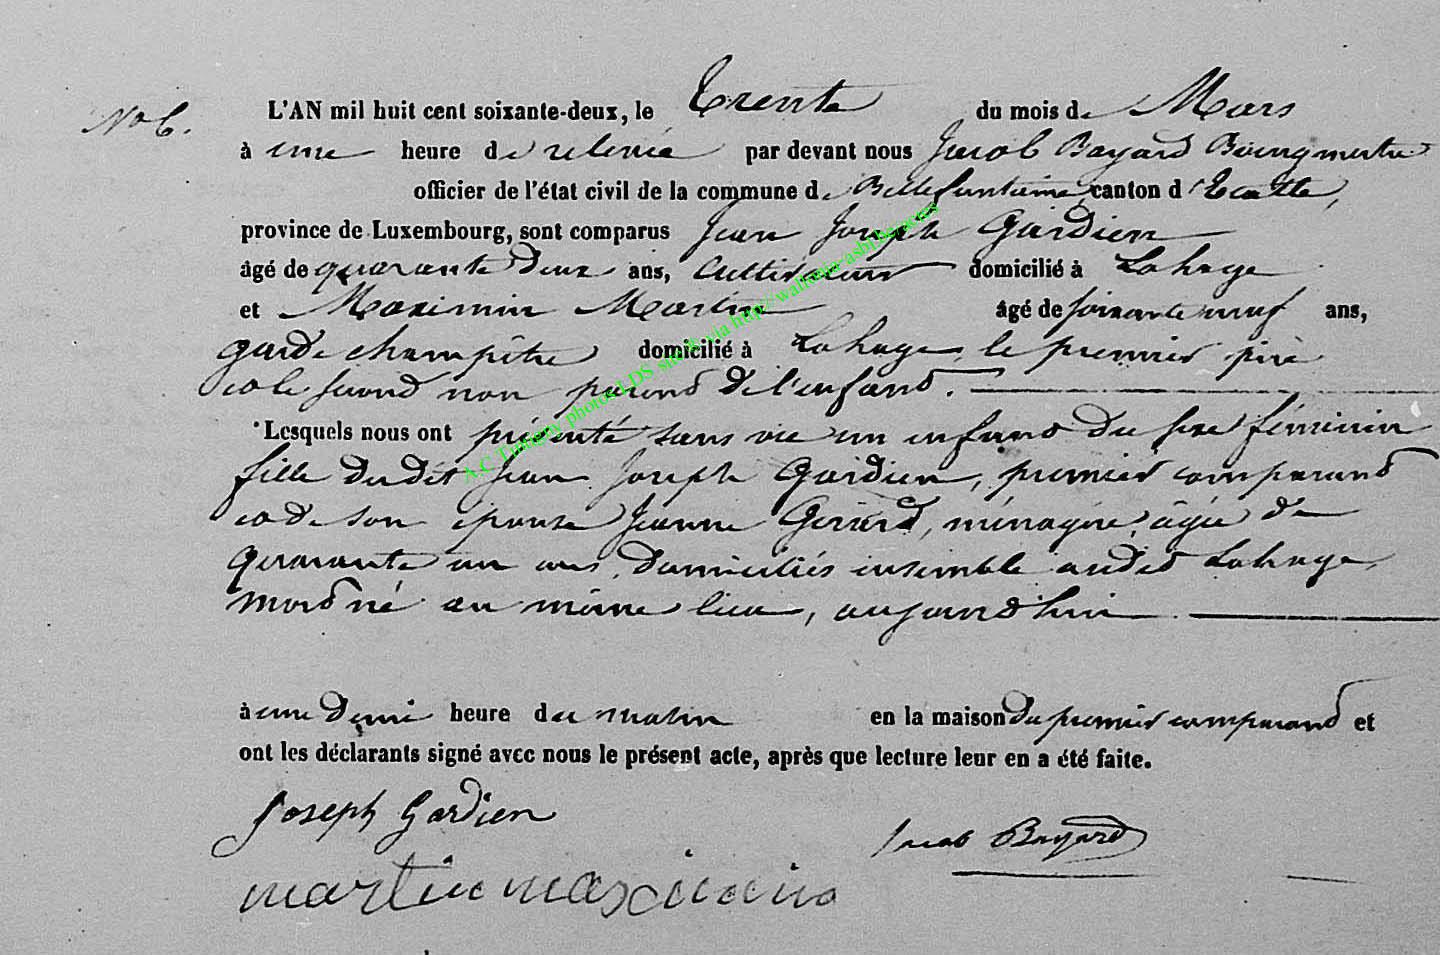 No 6.
L'AN mil huit cent soixante-deux, le trente du mois de Mars
à une heure de relevée par devant nous Jacob Bayard Bourgmestre
officier de l'état civil de la commune de Bellefontaine, canton d'Etalle,
province de Luxembourg, sont comparus Jean Joseph Gardien
âgé de quarante deux ans, Cultivateur domicilié à Lahage
et Maximin Martin âgé de soixante neuf ans,
garde champêtre domicilié à Lahage, le premier père
et le second non parent de l'enfant.
Lesquels nous ont présenté sans vie un enfant du sexe féminin
fille dudit Jean Joseph Gardien, premier comparant
et de son épouse Jeanne Gérard, ménagère, âgée de
quarante un ans, domiciliés ensemble audit Lahage,
mort né au même lieu, aujourd'hui
à une demi heure du matin en la maison du premier comparant et
ont les déclarants signé avec nous le présent acte, après que lecture leur en a été faite.
Joseph Gardien
Jacob Bayard
martin maximin
A.C Tintigny photos LDS site & via http://wallonia-asbl.be/actes